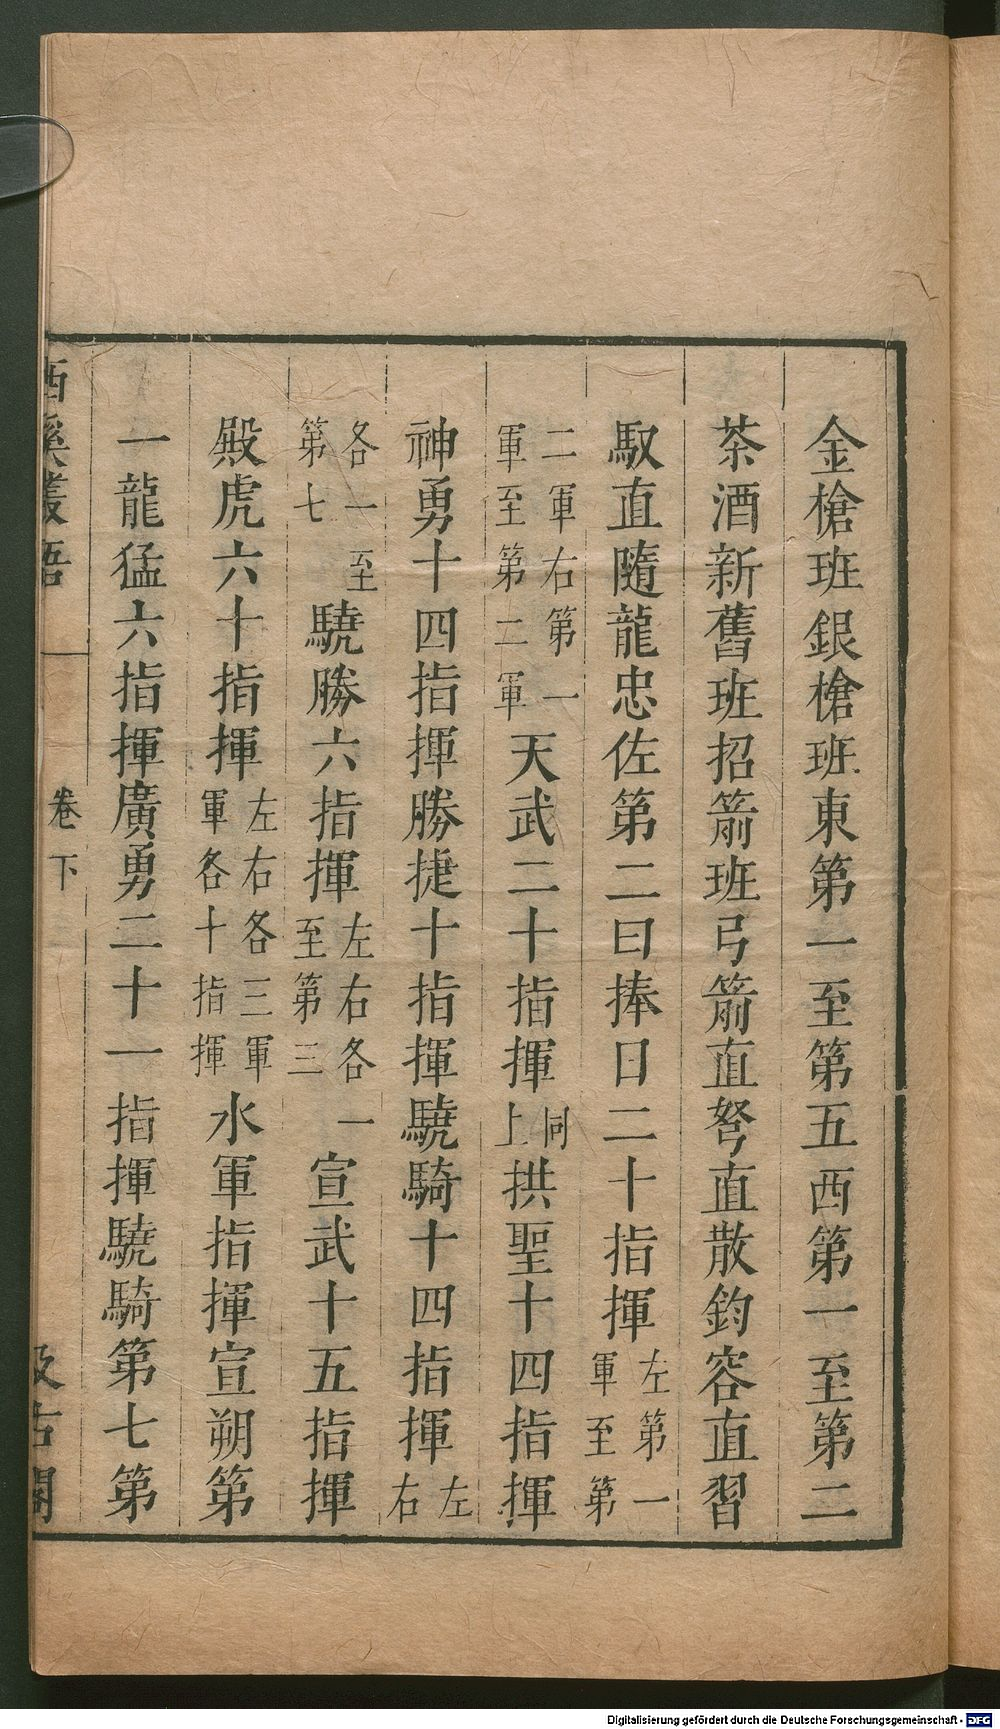 金槍班銀槍班東第一至第五西第一至第二
茶酒新舊班招箭班弓箭直弩直散鈞容直習
馭直隨龍忠佐第二曰捧日二十指揮左第一軍至第
二軍右第一軍至第二軍天武二十指揮同上拱聖十四指揮
神勇十四指揮勝捷十指揮驍騎十四指揮左右
各一至第七驍勝六指揮左右各一至第三宣武十五指揮
殿虎六十指揮左右各三軍軍各十指揮水軍指揮宣朔第
一龍猛六指揮廣勇二十一指揮驍騎第七第
西溪叢語
卷下
汲古閣
Digitalisierung gefördert durch die Deutsche Forschungsgemeinschaft - DFG